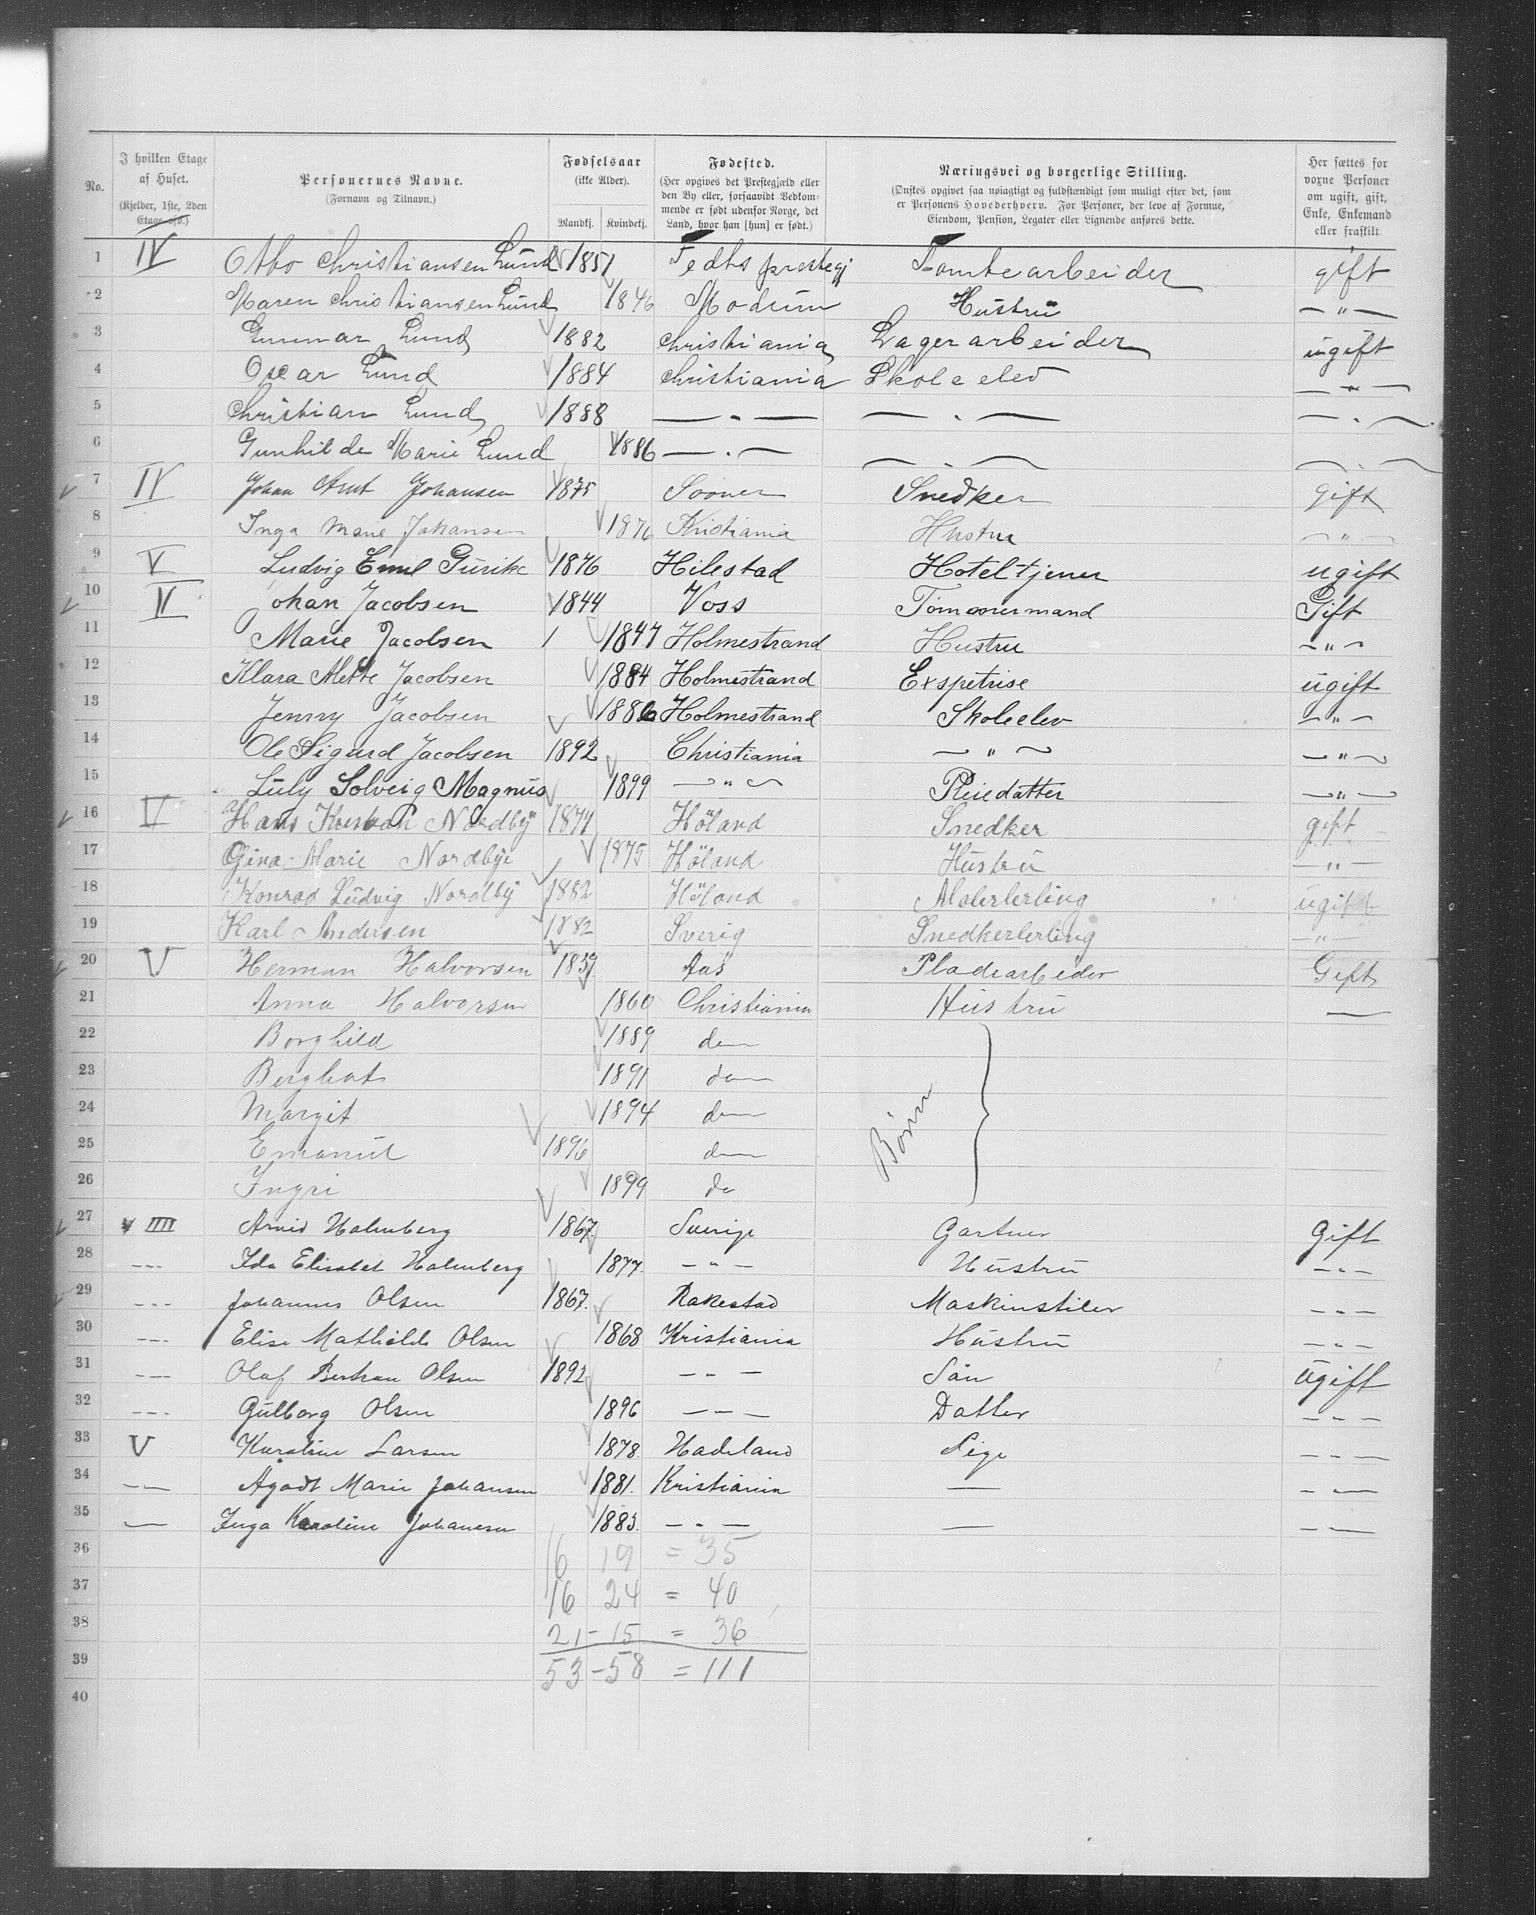 No. | I hvilken Etage af Huset. (Kjelder, 1ste, 2den Etage osv.) | Personernes Navne. (Fornavn og Tilnavn.) | Fødselsaar (ikke Alder). Mandkj. Kvindekj. | Fødested. (Her opgives det Prestegjæld eller den By eller, forsaavidt Vedkommende er født udenfor Norge, det Land, hvor han [hun] er født.) | Næringsvei og borgerlige Stilling. (Ønskes opgivet saa nøiagtigt og fuldstændigt som muligt efter det, som er Personens Hovederhverv. For Personer, der leve af Formue, Eiendom, Pension, Legater eller Lignende anføres dette. | Her sættes for voxne Personer om ugift, gift, Enke, Enkemand eller fraskilt
1 IV Otto Christiansen Lund 1851 Fedts prestegj Tomtearbeider gift
2 Maren Christiansen Lund 1846 Modum Hustru — " —
3 Gunnar Lund 1882 Christiania Lagerarbeider ugift
4 Oscar Lund 1884 Christiania Skoleelev — " —
5 Christian Lund 1888 — " — — " — — " —
6 Gunhilde Marie Lund 1886 — " — — " — — " —
7 IV Johan Arnt Johansen 1875 Sooner Snedker gift
8 Inga Marie Johansen 1876 Kristiania Hustru — " —
9 V Ludvig Emil Gurike 1876 Hilestad Hoteltjener ugift
10 V Johan Jacobsen 1844 Voss Tømmermand Gift
11 Marie Jacobsen 1 1847 Holmestrand Hustru — " —
12 Klara Mette Jacobsen 1884 Holmestrand Exspetrise ugift
13 Jenny Jacobsen 1886 Holmestrand Skoleelev — " —
14 Ole Sigurd Jacobsen 1892 Christiania — " — — " —
15 Luly Solveig Magnus 1899 — " — Pleiedatter — " —
16 V Hans Kristian Nordby 1871 Höland Snedker gift
17 Gina Marie Nordby 1875 Höland Hustru — " —
18 Konrad Ludvig Nordby 1882 Höland Malerlerling ugift
19 Karl Andersen 1882 Sverig Snedkerlerling — " —
20 V Herman Halvorsen 1859 Aas Pladearbeider Gift
21 Anna Halvorsen 1860 Christiania Hustru —
22 Borghild 1889 do
23 Bergliot 1891 do
24 Margit 1894 do Børn
25 Emanuel 1896 do
26 Ingri 1899 do
27 IIII Arvid Holmberg 1867 Sverige Gartner gift
28 --- Ida Elisabet Holmberg 1877. — " — Hustru — " —
29 --- Johannes Olsen 1867. Rakestad — " —
30 --- Elise Mathilde Olsen 1868 Kristiania Hustru — " —
31 --- Olaf Olsen 1892 — " — Sön Ugift
32 --- Gulborg Olsen 1896 — " — Datter — " —
33 V Karoline Larsen 1878. Hadeland Pige — " —
34 — — Agodt Marie Johansen 1881. Kristiania — — " —
35 — Inga Karoline Johansen 1883. — " — — — " —
36 16 19 = 35
37 16 24 = 40
38 21 - 15 = 36
39 53 - 58 = 111
40